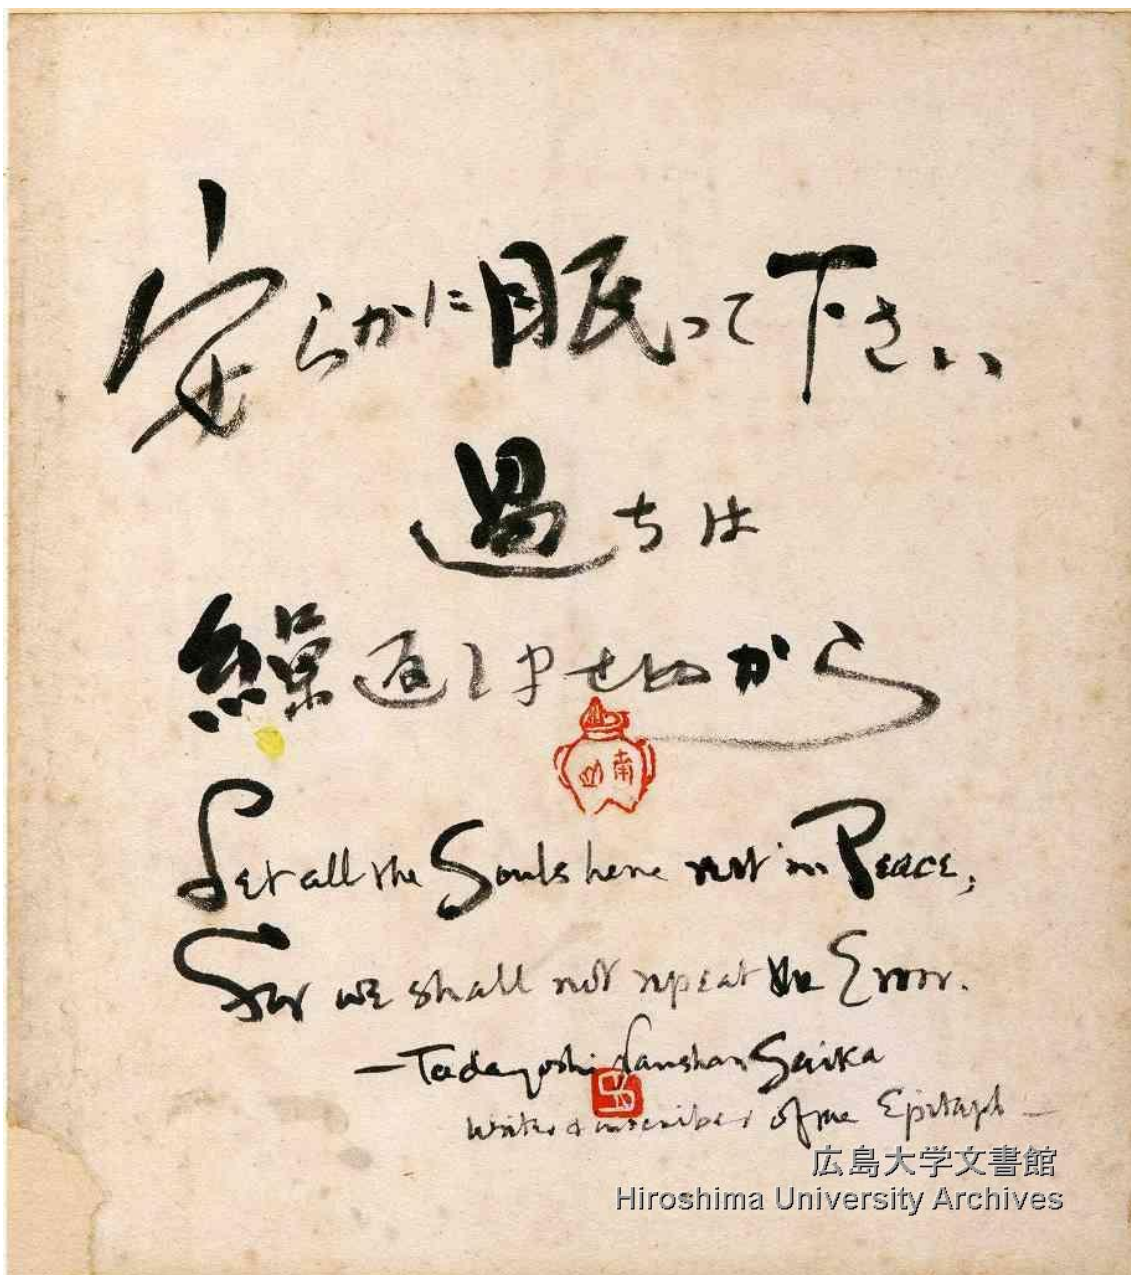 安らかに眠って下さい
過ちは
繰返しませぬから
南山
Let all the Souls here rest in Peace,
For we shall not repeat the Error.
—Tadayoshi Nanshan Saika
writer & inscriber of the Epitaph—
広島大学文書館
Hiroshima University Archives